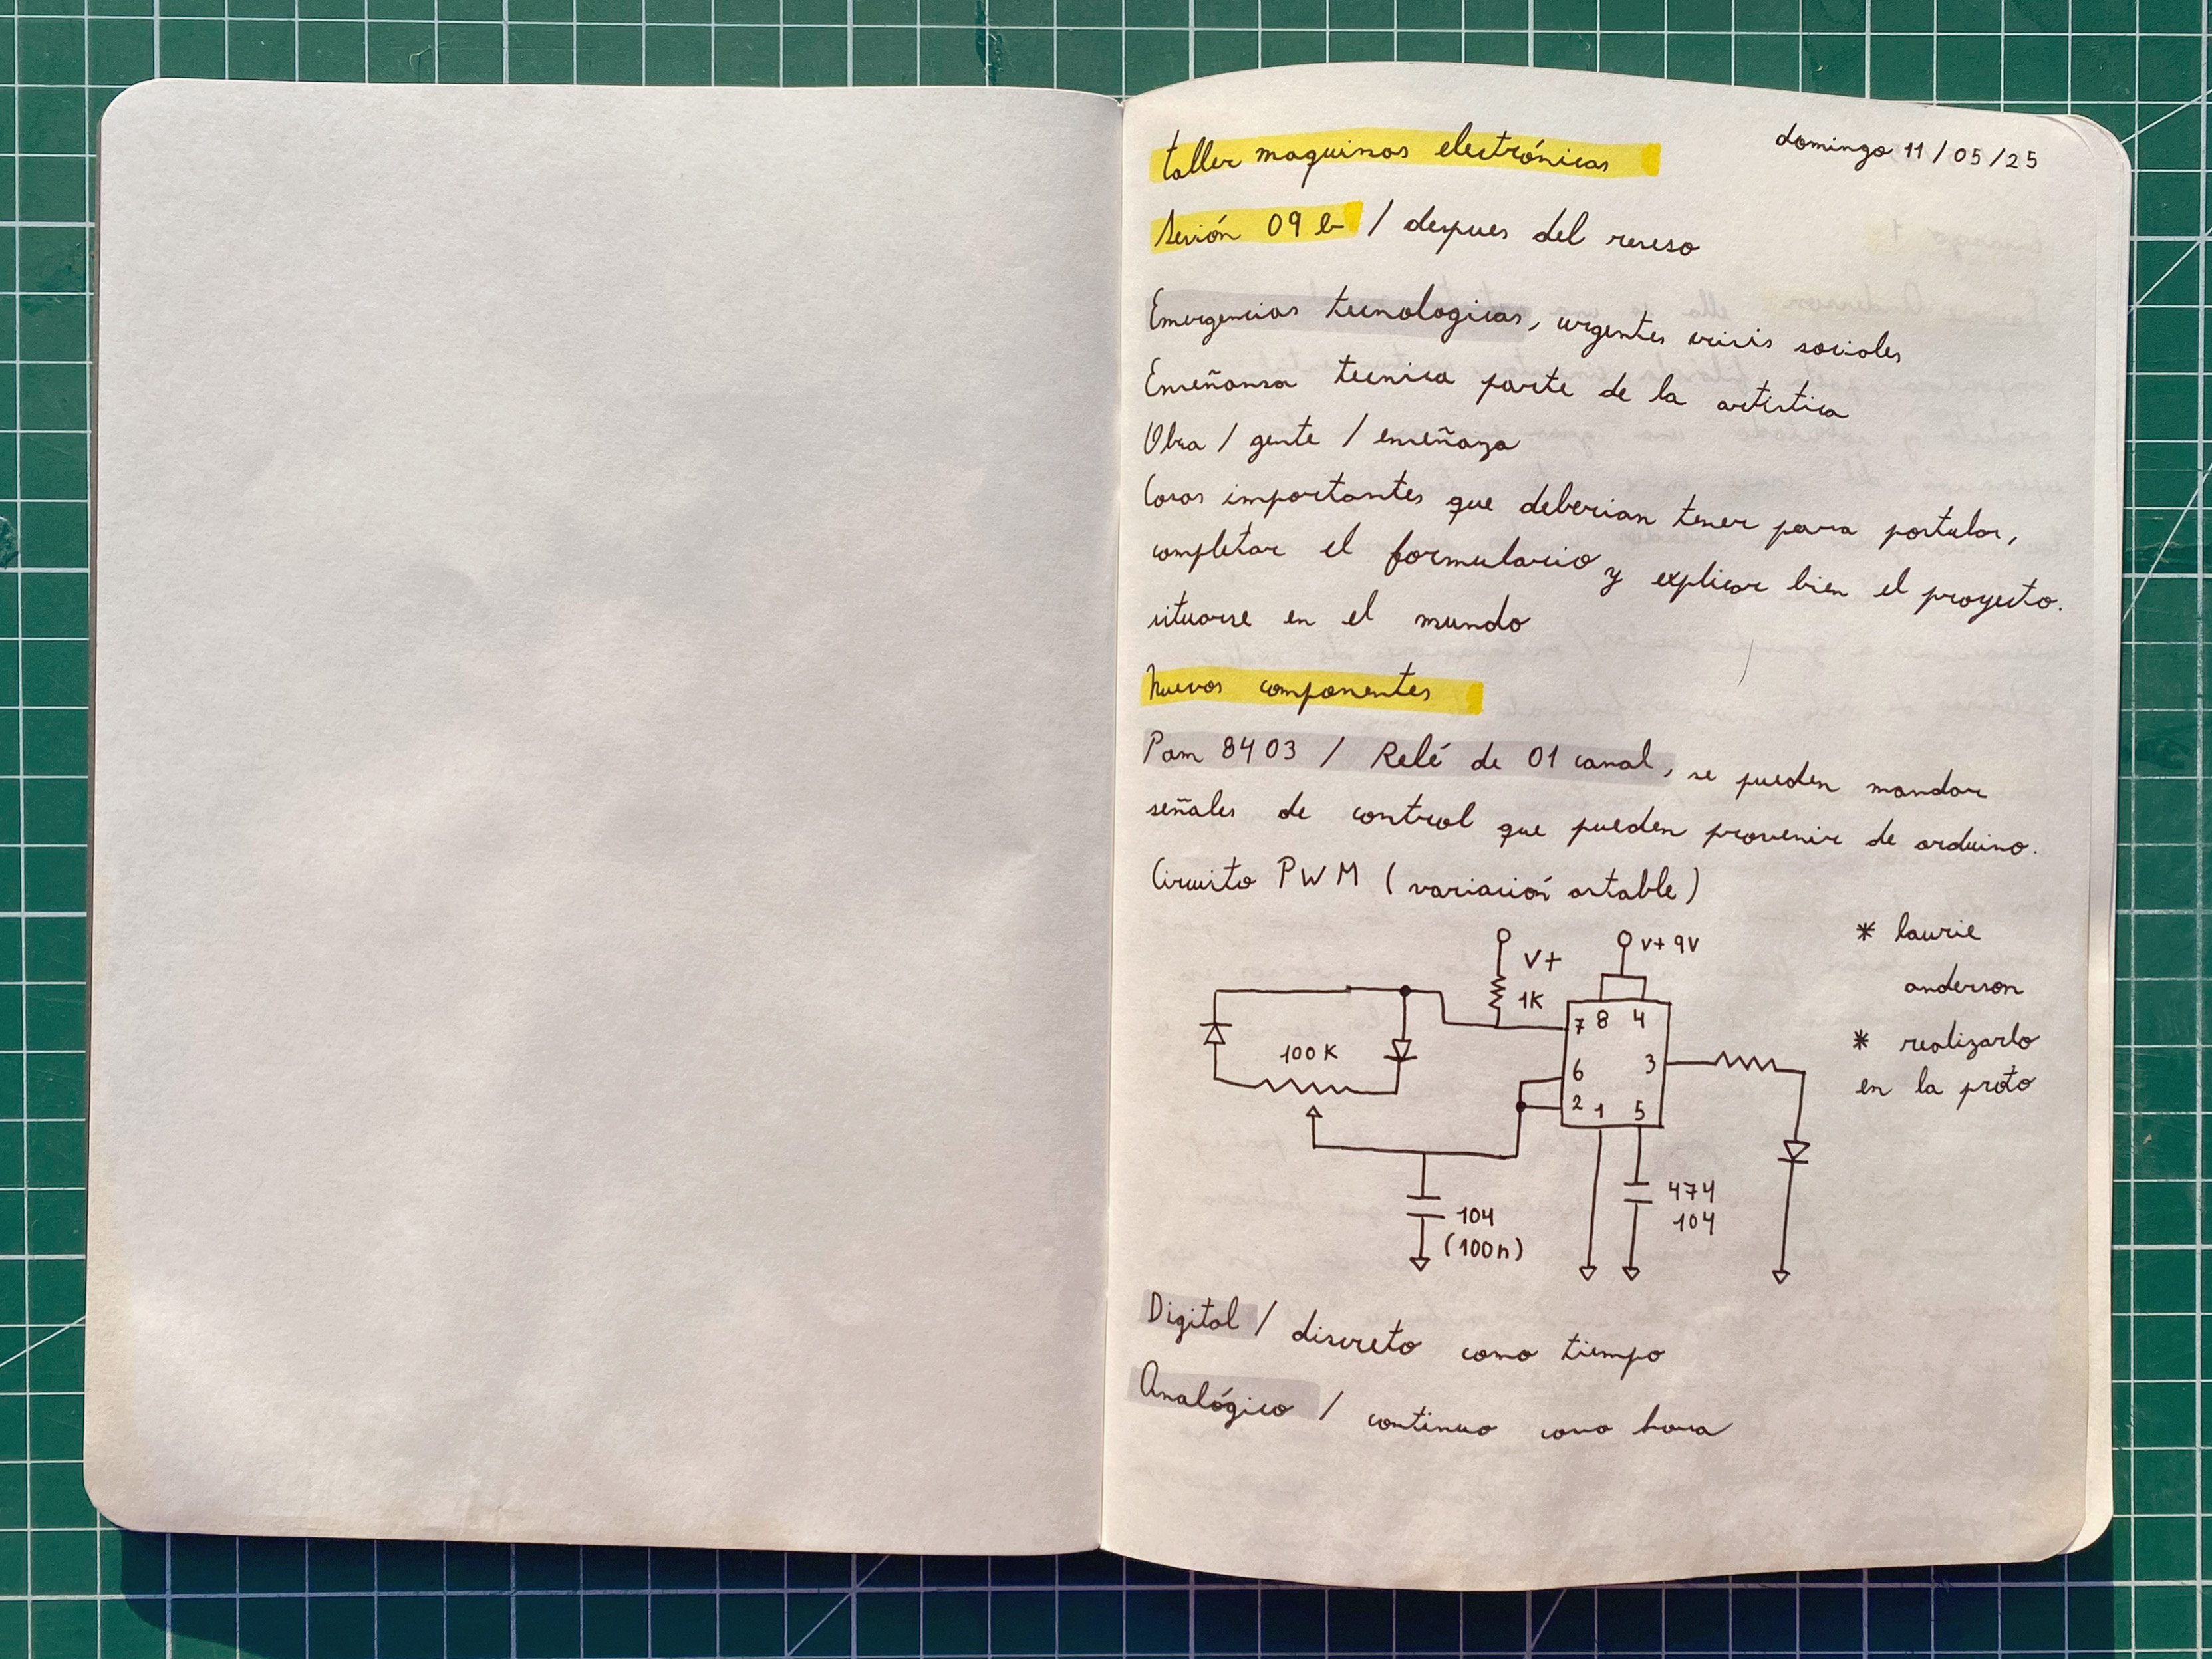 taller maquinas electrónicas
domingo 11/05/25
Sesión 09 b / despues del reseso
Emergencias tecnologicas, urgentes crisis sociales
Enseñansa tecnica parte de la artistica
Obra / gente / enseñaza
Cosas importantes que deberian tener para postular,
completar el formulario y explicar bien el proyecto.
situarse en el mundo
Nuevos componentes
Pam 8403 / Relé de 01 canal, se pueden mandar
señales de control que pueden provenir de arduino.
Circuito PWM (variación astable)
* laurie
anderson
* realizarlo
en la proto
V+
1K
V+ 9V
100K
7 8 4
6 3
2 1 5
104
(100n)
474
104
Digital / discreto como tiempo
Analógico / continuo como hora